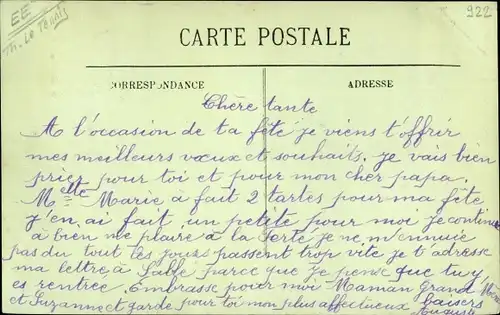 EE
922
CARTE POSTALE
CORRESPONDANCE
ADRESSE
Chère tante
A l'occasion de ta fête je viens t'offrir
mes meilleurs vœux et souhaits. je vais bien
prier pour toi et pour mon cher papa.
Melle Marie a fait 2 tartes pour ma fête
j'en ai fait un petite pour moi je continue
à bien me plaire à la Ferté je ne m'ennuie
pas du tout les jours passent trop vite je t'adresse
ma lettre à Sablé parce que je pense que tu y
es rentrée. Embrasse pour moi Maman grand
et Suzanne et garde pour toi mon plus affectueux baisers
Auguste